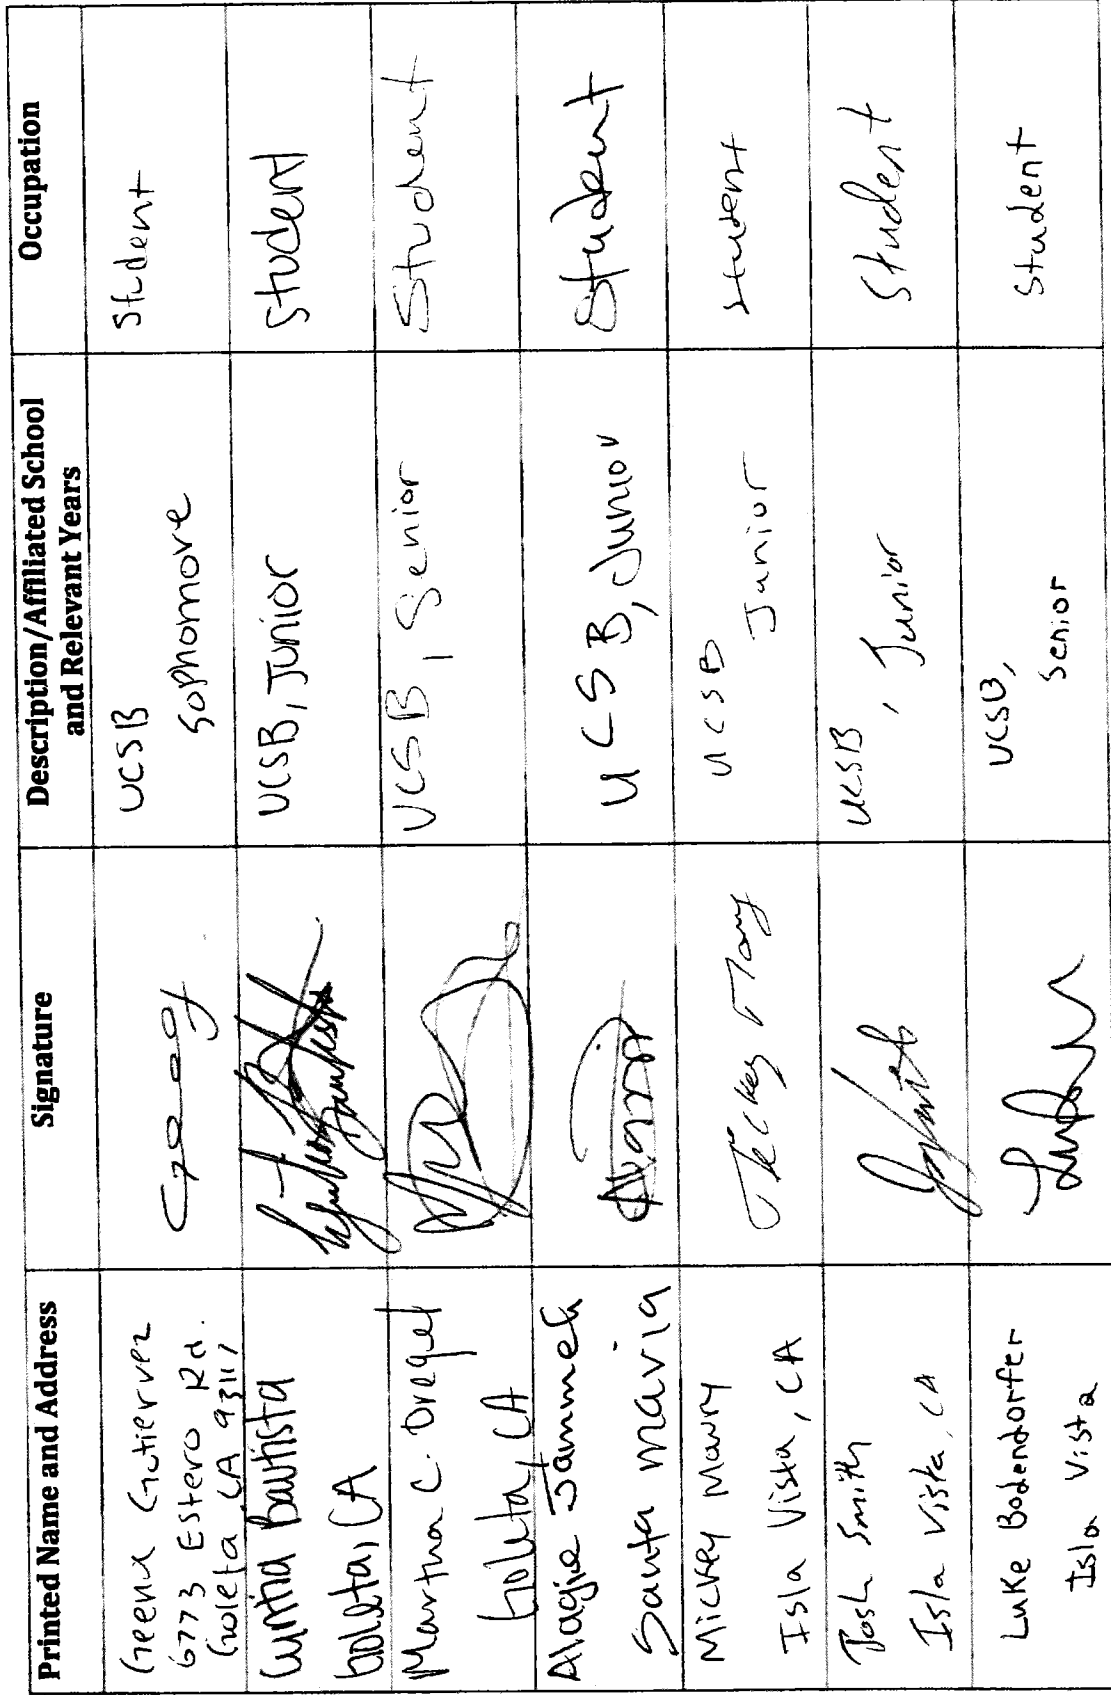 Printed Name and Address
Signature
Description/Affiliated School
and Relevant Years
Occupation
Geena Gutierrez
6773 Estero Rd.
Goleta, CA 93117
UCSB
Sophomore
Student
Bautista
Goleta, CA
UCSB, Junior
Student
Martha C. Oregel
Goleta, CA
UCSB, Senior
Student
Alagie Jammeh
Santa Maria
UCSB, Junior
Student
Mickey Maury
Isla Vista, CA
UCSB
Junior
Student
Josh Smith
Isla Vista, CA
UCSB, Junior
Student
Luke Bodendorfer
Isla Vista
UCSB,
Senior
Student